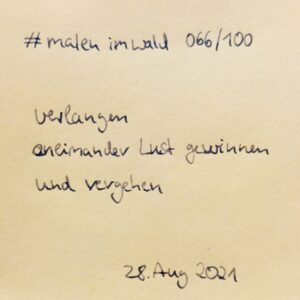 #malen im wald 066/100
verlangen
aneinander Lust gewinnen
und vergehen
28. Aug 2021